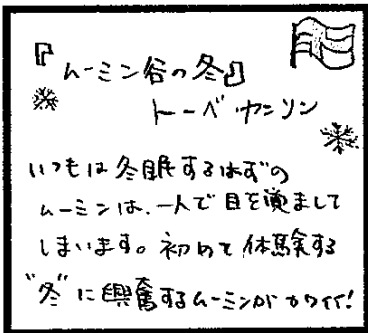 『ムーミン谷の冬』
トーベ ヤンソン
いつもは冬眠するはずの
ムーミンは、一人で目を覚まして
しまいます。初めて体験する
"冬"に興奮するムーミンがカワイイ!